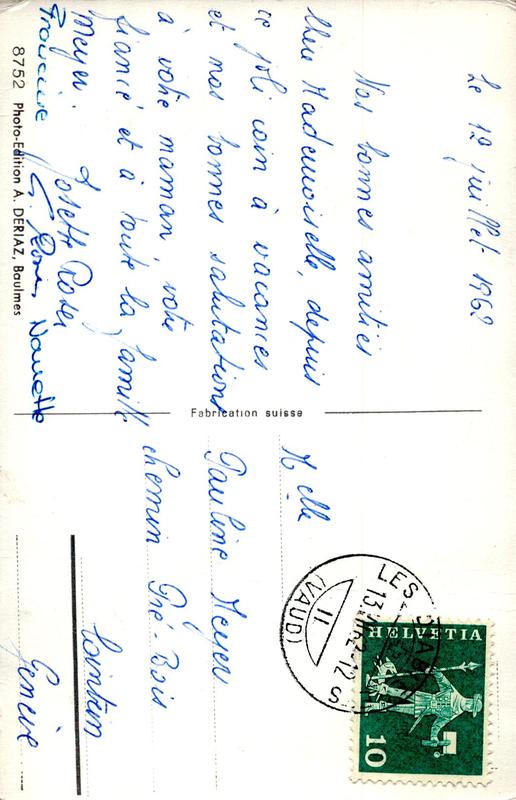 Le 12 juillet 1962
Nos bonnes amitiés
chère Mademoiselle, depuis
ce joli coin à vacances
et nos bonnes salutations
à votre maman, votre
fiancé et à toute la famille
Meyer. Josette Roser
Nanette
8752 Photo-Edition A. DERIAZ, Baulmes
Fabrication suisse
Melle
Pauline Meyer
chemin Pré-Bois
Cointrin
Genève
LES
(VAUD)
II
HELVETIA
10